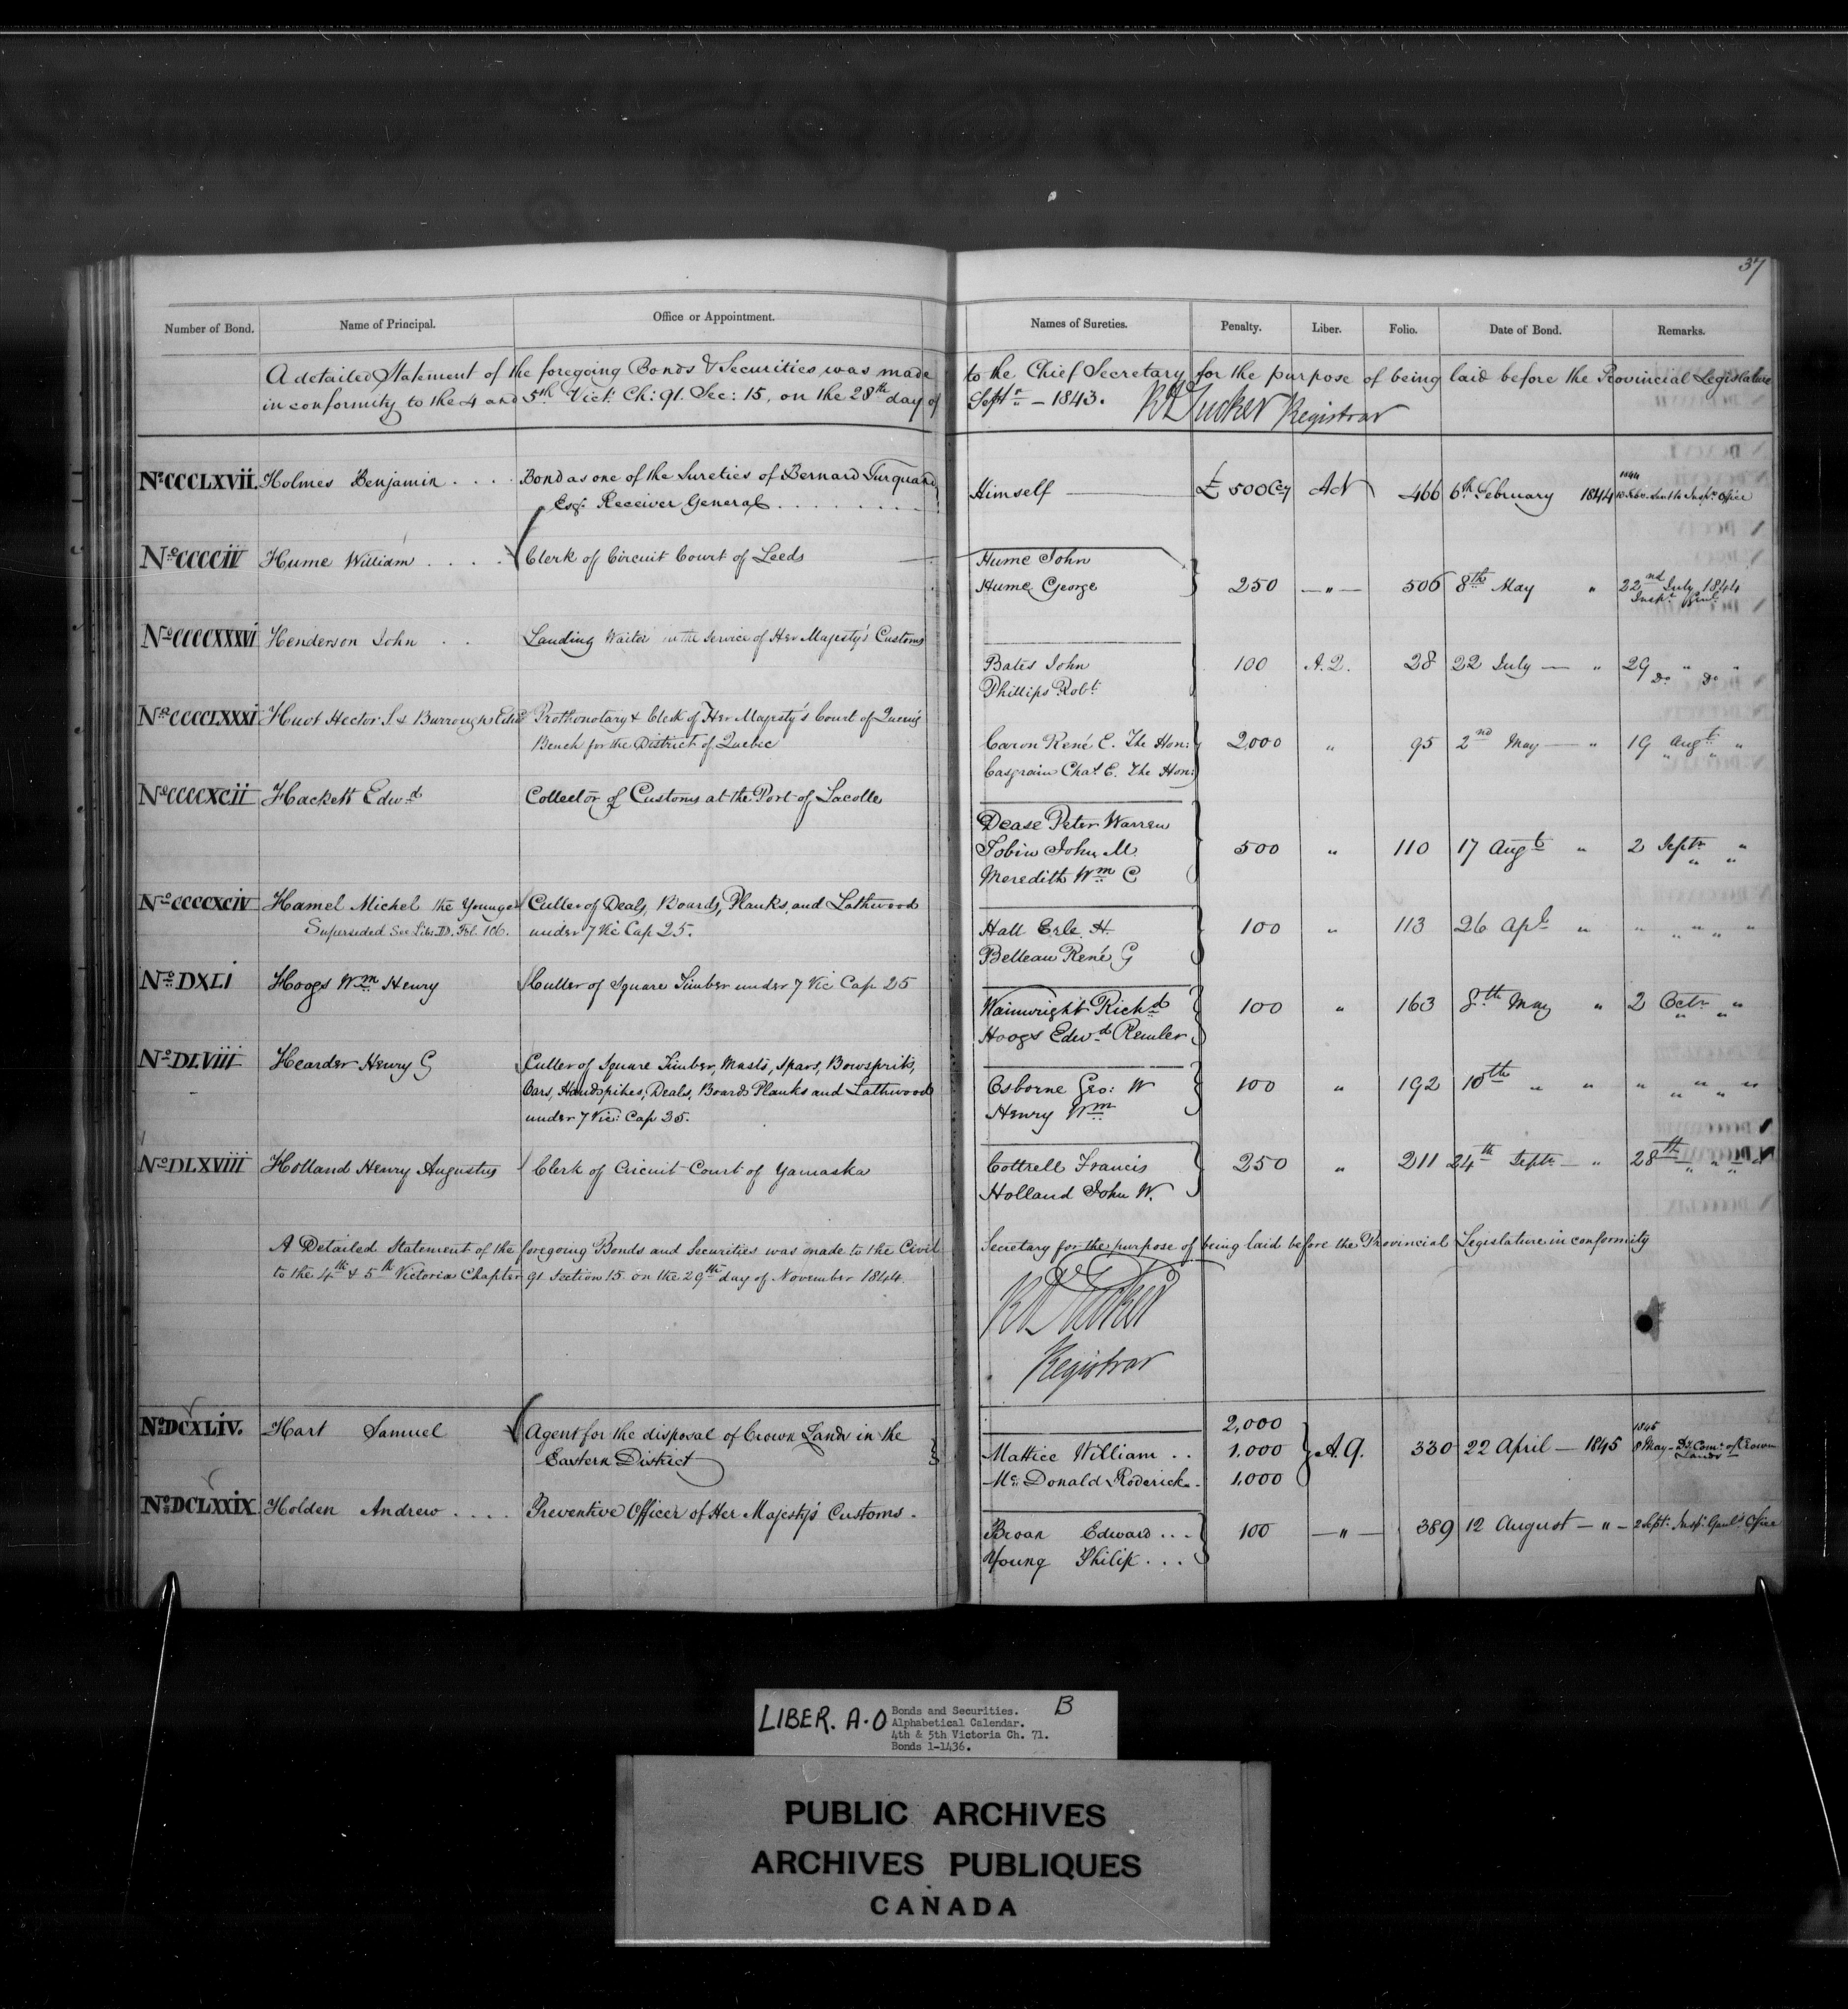 37
Number of Bond. Name of Principal. Office or Appointment. Names of Sureties. Penalty. Liber. Folio. Date of Bond. Remarks.
A detailed Statement of the foregoing Bonds & Securities was made to the Chief Secretary for the purpose of being laid before the Provincial Legislature
in conformity to the 4 and 5th Vict: Ch: 91. Sec: 15, on the 28th day of Septr - 1843. R A Tucker Registrar
No CCCLXVII. Holmes Benjamin . . . . Bond as one of the Sureties of Bernard Turquand
Esqr. Receiver General . . . . . . . . Himself £500 Cy AN 466 6th February 1844 1844
10 Feby. Sent to Inspr. Office
No CCCCIV Hume William . . . . . Clerk of Circuit Court of Leeds Hume John
Hume George 250 — " — 506 8th May " 22nd July 1844
Inspr Genl
No CCCCXXXVI Henderson John . . Landing Waiter in the Service of Her Majesty's Customs
Bates John 100 A.Q. 28 22 July — " 29 " "
Phillips Robt Do Do
No CCCCLXXXI Huot Hector S & Burroughs Edwd Prothonotary & Clerk of Her Majesty's Court of Queen's
Bench for the District of Quebec Caron René E. The Hon: 2,000 " 95 2nd May — " 19 Augt "
Casgrain Chas E. The Hon:
No CCCCXCII Hackett Edwd Collector of Customs at the Port of Lacolle
Dease Peter Warren
Tobin John M. 500 " 110 17 Augt " 2 Septr "
Meredith Wm C
No CCCCXCIV Hamel Michel the Younger Culler of Deals, Boards, Planks, and Lathwood
Superseded See Liber. D. Fol. 106. under 7 Vic Cap 25. Hall Erle. H. 100 " 113 26 Apl " " " " " "
Belleau René G
No DXLI Hoogs Wm Henry Culler of Square Timber under 7 Vic Cap 25
Wainwright Richd 100 " 163 8th May " 2 Octr "
Hoogs Edwd Remler
No DLVIII Hearder Henry G Culler of Square Timber, Masts, Spars, Bowsprits,
Oars, Handspikes, Deals, Boards Planks and Lathwood Osborne Geo: W 100 " 192 10th " " " " "
under 7 Vic: Cap 25. Henry Wm
No DLXVIII Holland Henry Augustus Clerk of Circuit Court of Yamaska Cottrell Francis 250 " 211 24th Septr — " 28th " " "
Holland John W.
A Detailed Statement of the foregoing Bonds and Securities was made to the Civil Secretary for the purpose of being laid before the Provincial Legislature in conformity
to the 4th & 5th Victoria Chapter 91 Section 15 on the 29th day of November 1844.
R A Tucker
Registrar
No DCXLIV. Hart Samuel Agent for the disposal of Crown Lands in the
Eastern District 2,000
Mattice William . . 1,000 A.Q. 330 22 April — 1845 1845
8 May - Dy. Comr. of Crown
Lands
Mc Donald Roderick - 1,000
No DCLXXIX Holden Andrew . . . . Preventive Officer of Her Majesty's Customs.
Broan Edward . . . 100 — " — 389 12 August — " — 2 Septr. Inspr. Genl's Office
Young Philip . . .
LIBER. A-O Bonds and Securities. B
Alphabetical Calendar.
4th & 5th Victoria Ch. 71.
Bonds 1-1436.
PUBLIC ARCHIVES
ARCHIVES PUBLIQUES
CANADA